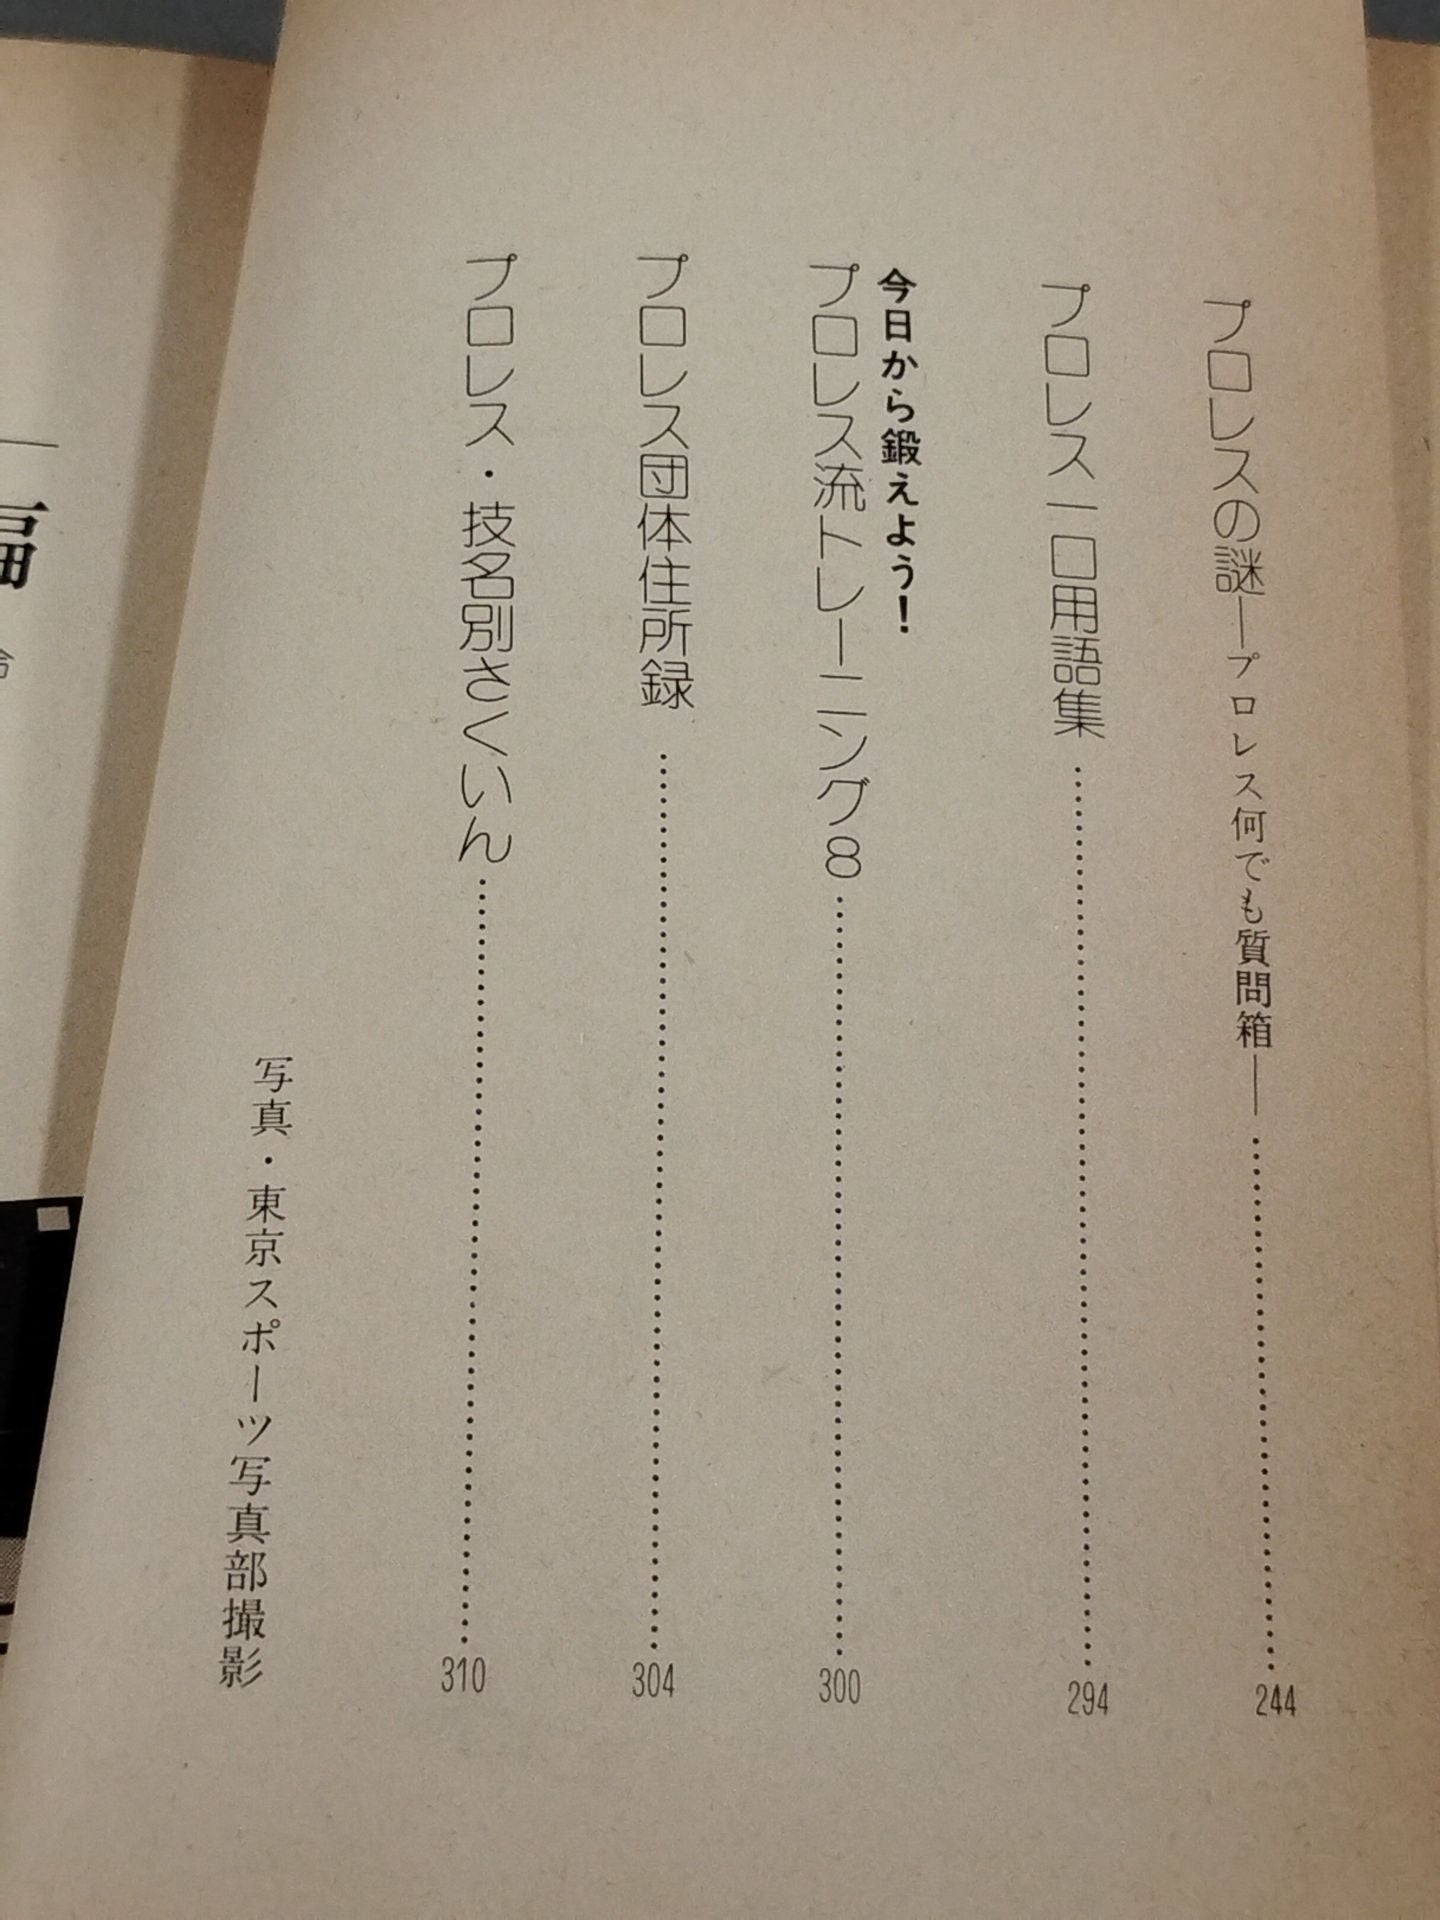 プロレスの謎―プロレス何でも質問箱―……244
プロレス一口用語集……294
今日から鍛えよう！
プロレス流トレーニング8……300
プロレス団体住所録……304
プロレス・技名別さくいん……310
写真・東京スポーツ写真部撮影